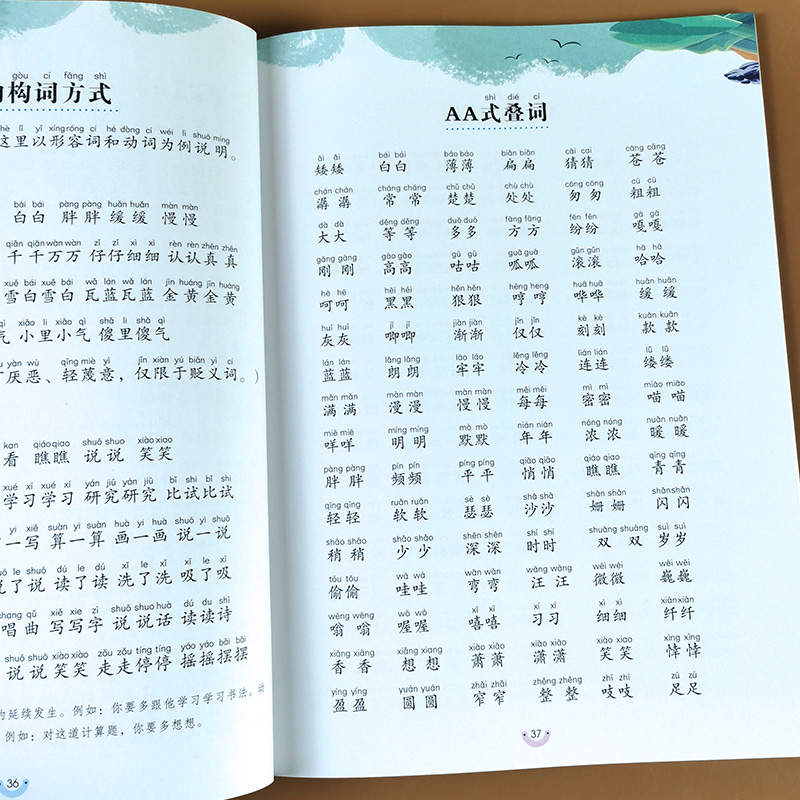 gòu cí fāng shì
构词方式
lǐ yǐ xíng róng cí hé dòng cí wéi lì shuō míng
这里以形容词和动词为例说明。
bái bái pàng pàng huǎn huǎn màn màn
白白 胖胖 缓缓 慢慢
qiān qiān wàn wàn zǐ zǐ xì xì rèn rèn zhēn zhēn
千千万万 仔仔细细 认认真真
xuě bái xuě bái wǎ lán wǎ lán jīn huáng jīn huáng
雪白雪白 瓦蓝瓦蓝 金黄金黄
qì xiǎo li xiǎo qì shǎ li shǎ qì
气 小里小气 傻里傻气
yàn wù qīng miè yì jǐn xiàn yú biǎn yì cí
厌恶、轻蔑意，仅限于贬义词。）
kan qiáo qiao shuō shuo xiào xiao
看 瞧瞧 说说 笑笑
xué xí xué xí yán jiū yán jiū bǐ shì bǐ shì
学习学习 研究研究 比试比试
yi xiě suàn yi suàn huà yi huà shuō yi shuō
一写 算一算 画一画 说一说
le shuō dú le dú xǐ le xǐ xī le xī
说了说 读了读 洗了洗 吸了吸
chàng qǔ xiě xie zì shuō shuo huà dú du shī
唱曲 写写字 说说话 读读诗
shuō shuō xiào xiào zǒu zǒu tíng tíng yáo yáo bǎi bǎi
说说笑笑 走走停停 摇摇摆摆
的延续发生。例如：你要多跟他学习学习书法。
例如：对这道计算题，你要多想想。
36
shì dié cí
AA式叠词
ǎi ǎi bái bái báo báo biǎn biǎn cāi cai cāng cāng
矮矮 白白 薄薄 扁扁 猜猜 苍苍
chán chán cháng cháng chǔ chǔ chù chù cōng cōng cū cū
潺潺 常常 楚楚 处处 匆匆 粗粗
dà dà děng děng duō duō fāng fāng fēn fēn gā gā
大大 等等 多多 方方 纷纷 嘎嘎
gāng gāng gāo gāo gū gū guā guā gǔn gǔn hā hā
刚刚 高高 咕咕 呱呱 滚滚 哈哈
hē hē hēi hēi hěn hěn hēng hēng huā huā huǎn huǎn
呵呵 黑黑 狠狠 哼哼 哗哗 缓缓
huī huī jī jī jiàn jiàn jǐn jǐn kè kè kuǎn kuǎn
灰灰 唧唧 渐渐 仅仅 刻刻 款款
lán lán lǎng lǎng láo láo lěng lěng lián lián lǚ lǚ
蓝蓝 朗朗 牢牢 冷冷 连连 缕缕
mǎn mǎn màn màn màn màn měi měi mì mì miāo miāo
满满 漫漫 慢慢 每每 密密 喵喵
miē miē míng míng mò mò nián nián nóng nóng nuǎn nuǎn
咩咩 明明 默默 年年 浓浓 暖暖
pàng pàng pín pín píng píng qiāo qiāo qiáo qiao qīng qīng
胖胖 频频 平平 悄悄 瞧瞧 青青
qīng qīng ruǎn ruǎn sè sè shā shā shān shān shǎn shǎn
轻轻 软软 瑟瑟 沙沙 姗姗 闪闪
shāo shāo shǎo shǎo shēn shēn shí shí shuāng shuāng suì suì
稍稍 少少 深深 时时 双双 岁岁
tōu tōu wā wā wān wān wāng wāng wēi wēi wēi wēi
偷偷 哇哇 弯弯 汪汪 微微 巍巍
wēng wēng wō wō xī xī xí xí xì xì xiān xiān
嗡嗡 喔喔 嘻嘻 习习 细细 纤纤
xiāng xiāng xiǎng xiang xiāo xiāo xiāo xiāo xiào xiao xìng xìng
香香 想想 萧萧 潇潇 笑笑 悻悻
yíng yíng yuán yuán zhǎi zhǎi zhěng zhěng zhī zhī zú zú
盈盈 圆圆 窄窄 整整 吱吱 足足
37